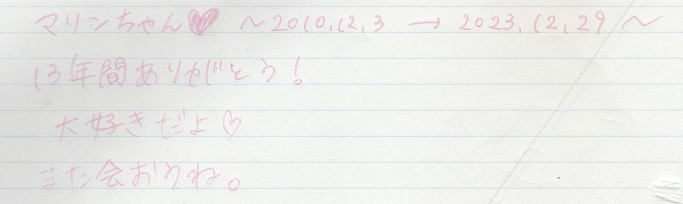 マリンちゃん♥ ～2010.12.3 → 2023.12.29～
13年間ありがとう!
大好きだよ♡
また会おうね。